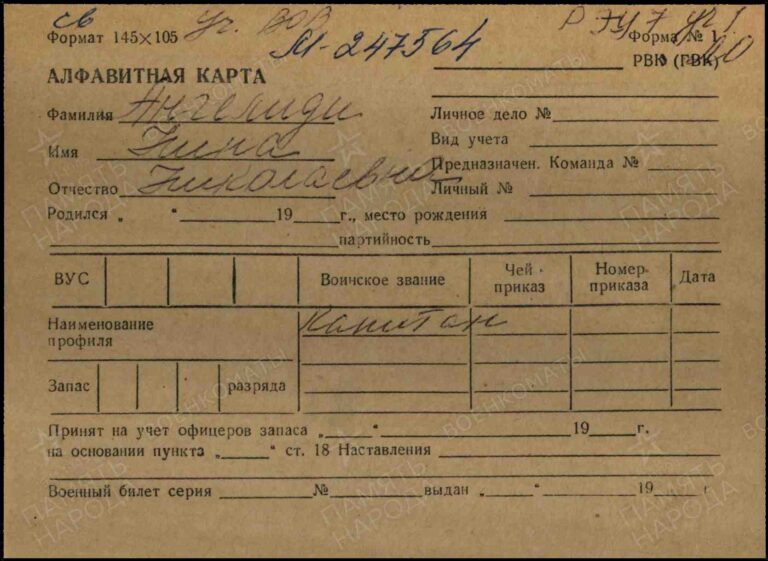 св
Формат 145×105 Уч. ВОВ М-247564 Форма № 1
РВК (ГВК)
АЛФАВИТНАЯ КАРТА
Фамилия Ангелиди
Личное дело №
Имя Нина
Вид учета
Предназначен. Команда №
Отчество Николаевна
Личный №
Родился „ “ 19 г., место рождения
партийность
ВУС Воинское звание Чей приказ Номер приказа Дата
Наименование профиля Капитан
Запас разряда
Принят на учет офицеров запаса „ “ 19 г.
на основании пункта „ “ ст. 18 Наставления
Военный билет серия № выдан „ “ 19 г
ПАМЯТЬ НАРОДА
ВОЕНКОМАТЫ